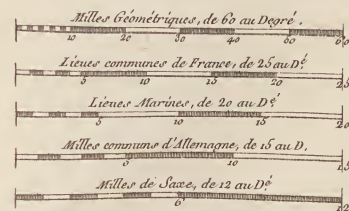 Milles Géométriques, de 60 au Degré.
10 20 30 40 50 60
Lieues communes de France, de 25 au Dé.
5 10 15 20 25
Lieues Marines, de 20 au Dé.
5 10 15 20
Milles communs d'Allemagne, de 15 au D.
5 10 15
Milles de Saxe, de 12 au Dé.
6 12